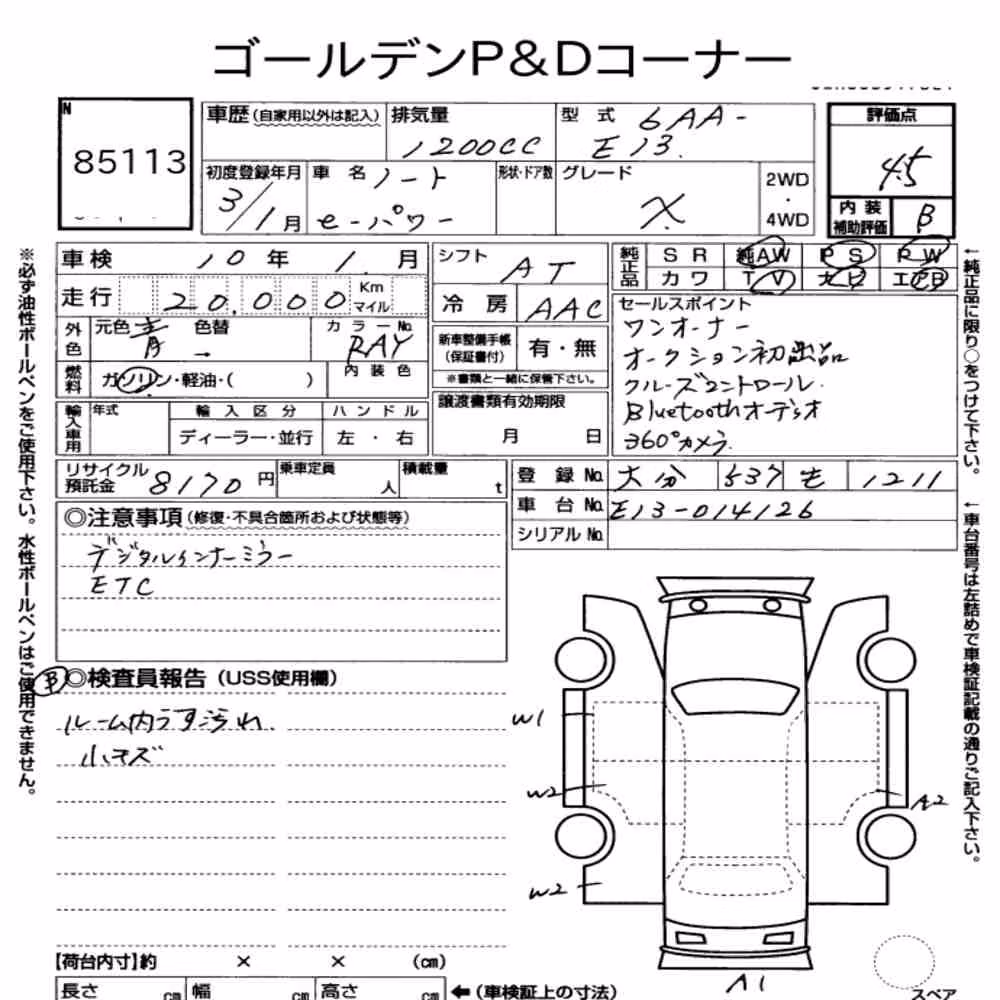 ゴールデンP&Dコーナー
N
85113
車歴(自家用以外は記入)
排気量
1200CC
型式
6AA-
E13
評価点
4.5
初度登録年月
3/1月
車名 ノート
e-パワー
形状・ドア数
グレード
X
2WD
・
4WD
内装
補助評価
B
車検 10年 1月
走行 20,000 Km
マイル
シフト
AT
冷房
AAC
純正品
SR 純AW PS PW
カワ TV エBB
外色
元色 青 色替
カラーNo.
RAY
燃料
ガソリン・軽油・( )
内装色
新車整備手帳
(保証書付)
有・無
※書類と一緒に保管下さい。
セールスポイント
ワンオーナー
オークション初出品
クルーズコントロール
Bluetoothオーディオ
360°カメラ
輸入車用
年式
輸入区分
ハンドル
ディーラー・並行
左・右
譲渡書類有効期限
月 日
リサイクル
預託金
8170円
乗車定員
人
積載量
t
登録No. 大分 537 1211
車台No. E13-014126
シリアルNo.
◎注意事項(修復・不具合箇所および状態等)
デジタルインナーミラー
ETC
B
◎検査員報告(USS使用欄)
ルーム内うす汚れ
小キズ
W1
W2
A2
W2
A1
【荷台内寸】約 × × (cm)
長さ cm 幅 cm 高さ cm ←(車検証上の寸法)
スペア
※必ず油性ボールペンをご使用下さい。水性ボールペンはご使用できません。
←純正品に限り○をつけて下さい。
←車台番号は左詰めで車検証記載の通りご記入下さい。